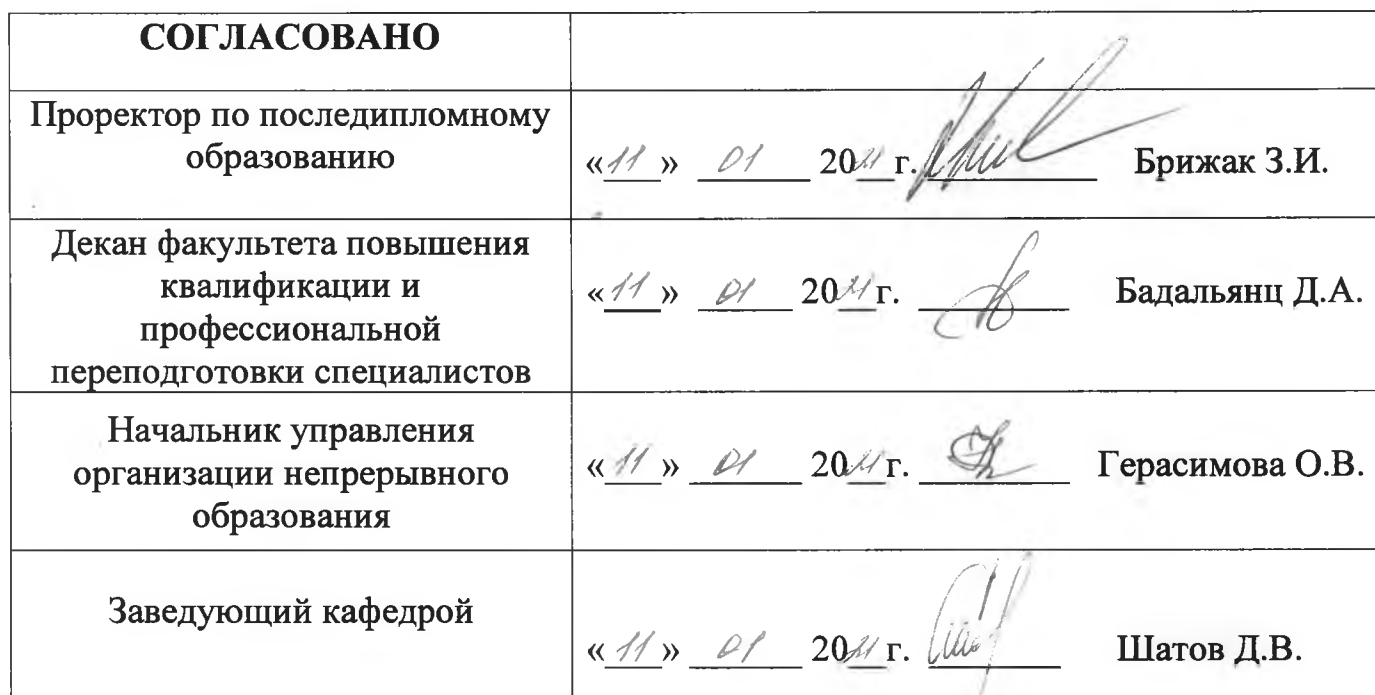 СОГЛАСОВАНО
Проректор по последипломному
образованию
«11» 01 2021г. Брижак З.И.
Декан факультета повышения
квалификации и
профессиональной
переподготовки специалистов
«11» 01 2021г. Бадальянц Д.А.
Начальник управления
организации непрерывного
образования
«11» 01 2021г. Герасимова О.В.
Заведующий кафедрой
«11» 01 2021г. Шатов Д.В.